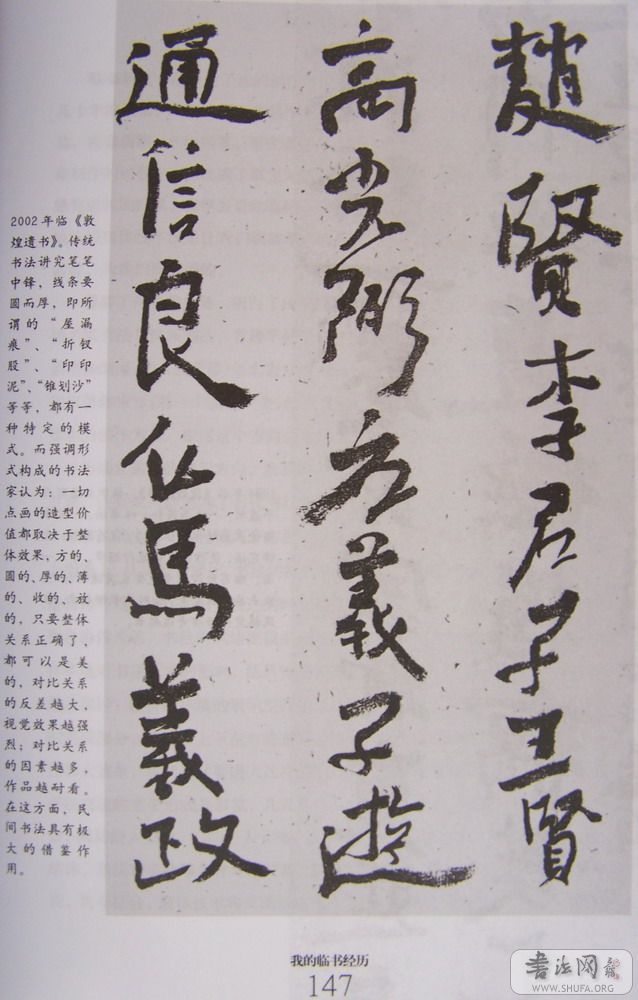 趙賢李君子王賢
高光弼義子遊
通信良馬義政
2002年临《敦
煌遗书》。传统
书法讲究笔笔
中锋，线条要
圆而厚，即所
谓的“屋漏
痕”、“折钗
股”、“印印
泥”、“锥划沙”
等等，都有一
种特定的模
式。而强调形
式构成的书法
家认为：一切
点画的造型价
值都取决于整
体效果，方的、
圆的、厚的、薄
的、收的、放
的，只要整体
关系正确了，
都可以是美
的，对比关系
的反差越大，
视觉效果越强
烈；对比关系
的因素越多，
作品越耐看。
在这方面，民
间书法具有极
大的借鉴作
用。
我的临书经历
147
书法网
WWW.SHUFA.ORG